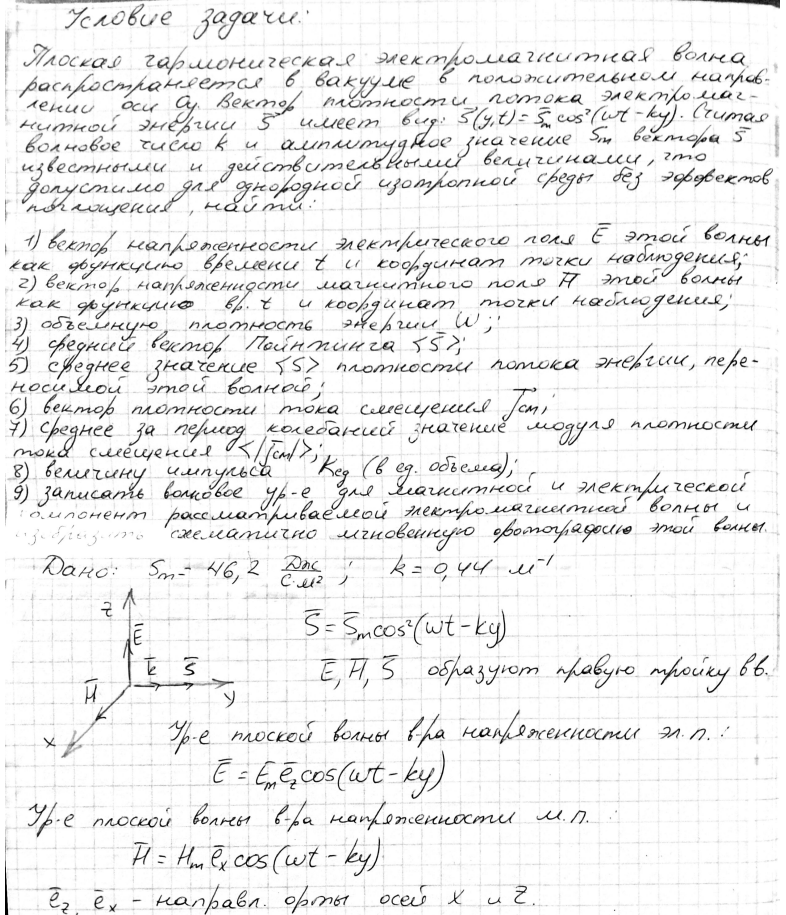 Условие задачи:
Плоская гармоническая электромагнитная волна
распространяется в вакууме в положительном направ-
лении оси Oy. Вектор плотности потока электромаг-
нитной энергии S̅ имеет вид: S̅(y,t) = S̅m cos²(ωt-ky). Считая
волновое число k и амплитудное значение Sm вектора S̅
известными и действительными величинами, что
допустимо для однородной изотропной среды без эффектов
поглощения, найти:
1) вектор напряженности электрического поля E̅ этой волны
как функцию времени t и координат точки наблюдения;
2) вектор напряженности магнитного поля H̅ этой волны
как функцию вр. t и координат точки наблюдения;
3) объемную плотность энергии W;
4) средний вектор Пойнтинга <S̅>;
5) среднее значение <S> плотности потока энергии, пере-
носимой этой волной;
6) вектор плотности тока смещения j̅см;
7) среднее за период колебаний значение модуля плотности
тока смещения <|j̅см|>;
8) величину импульса Kед (в ед. объема);
9) записать волновое ур-е для магнитной и электрической
компонент рассматриваемой электромагнитной волны и
изобразить схематично мгновенную фотографию этой волны.
Дано: Sm = 46,2 Дж/с·м² ; k = 0,44 м⁻¹
z
E̅
H̅
k̅
S̅
x
y
S̅ = S̅m cos²(ωt-ky)
E̅, H̅, S̅ образуют правую тройку вв.
Ур-е плоской волны в-ра напряженности эл.п.:
E̅ = Em e̅z cos(ωt-ky)
Ур-е плоской волны в-ра напряженности м.п. :
H̅ = Hm e̅x cos(ωt-ky)
e̅z, e̅x - направл. орты осей x и z.